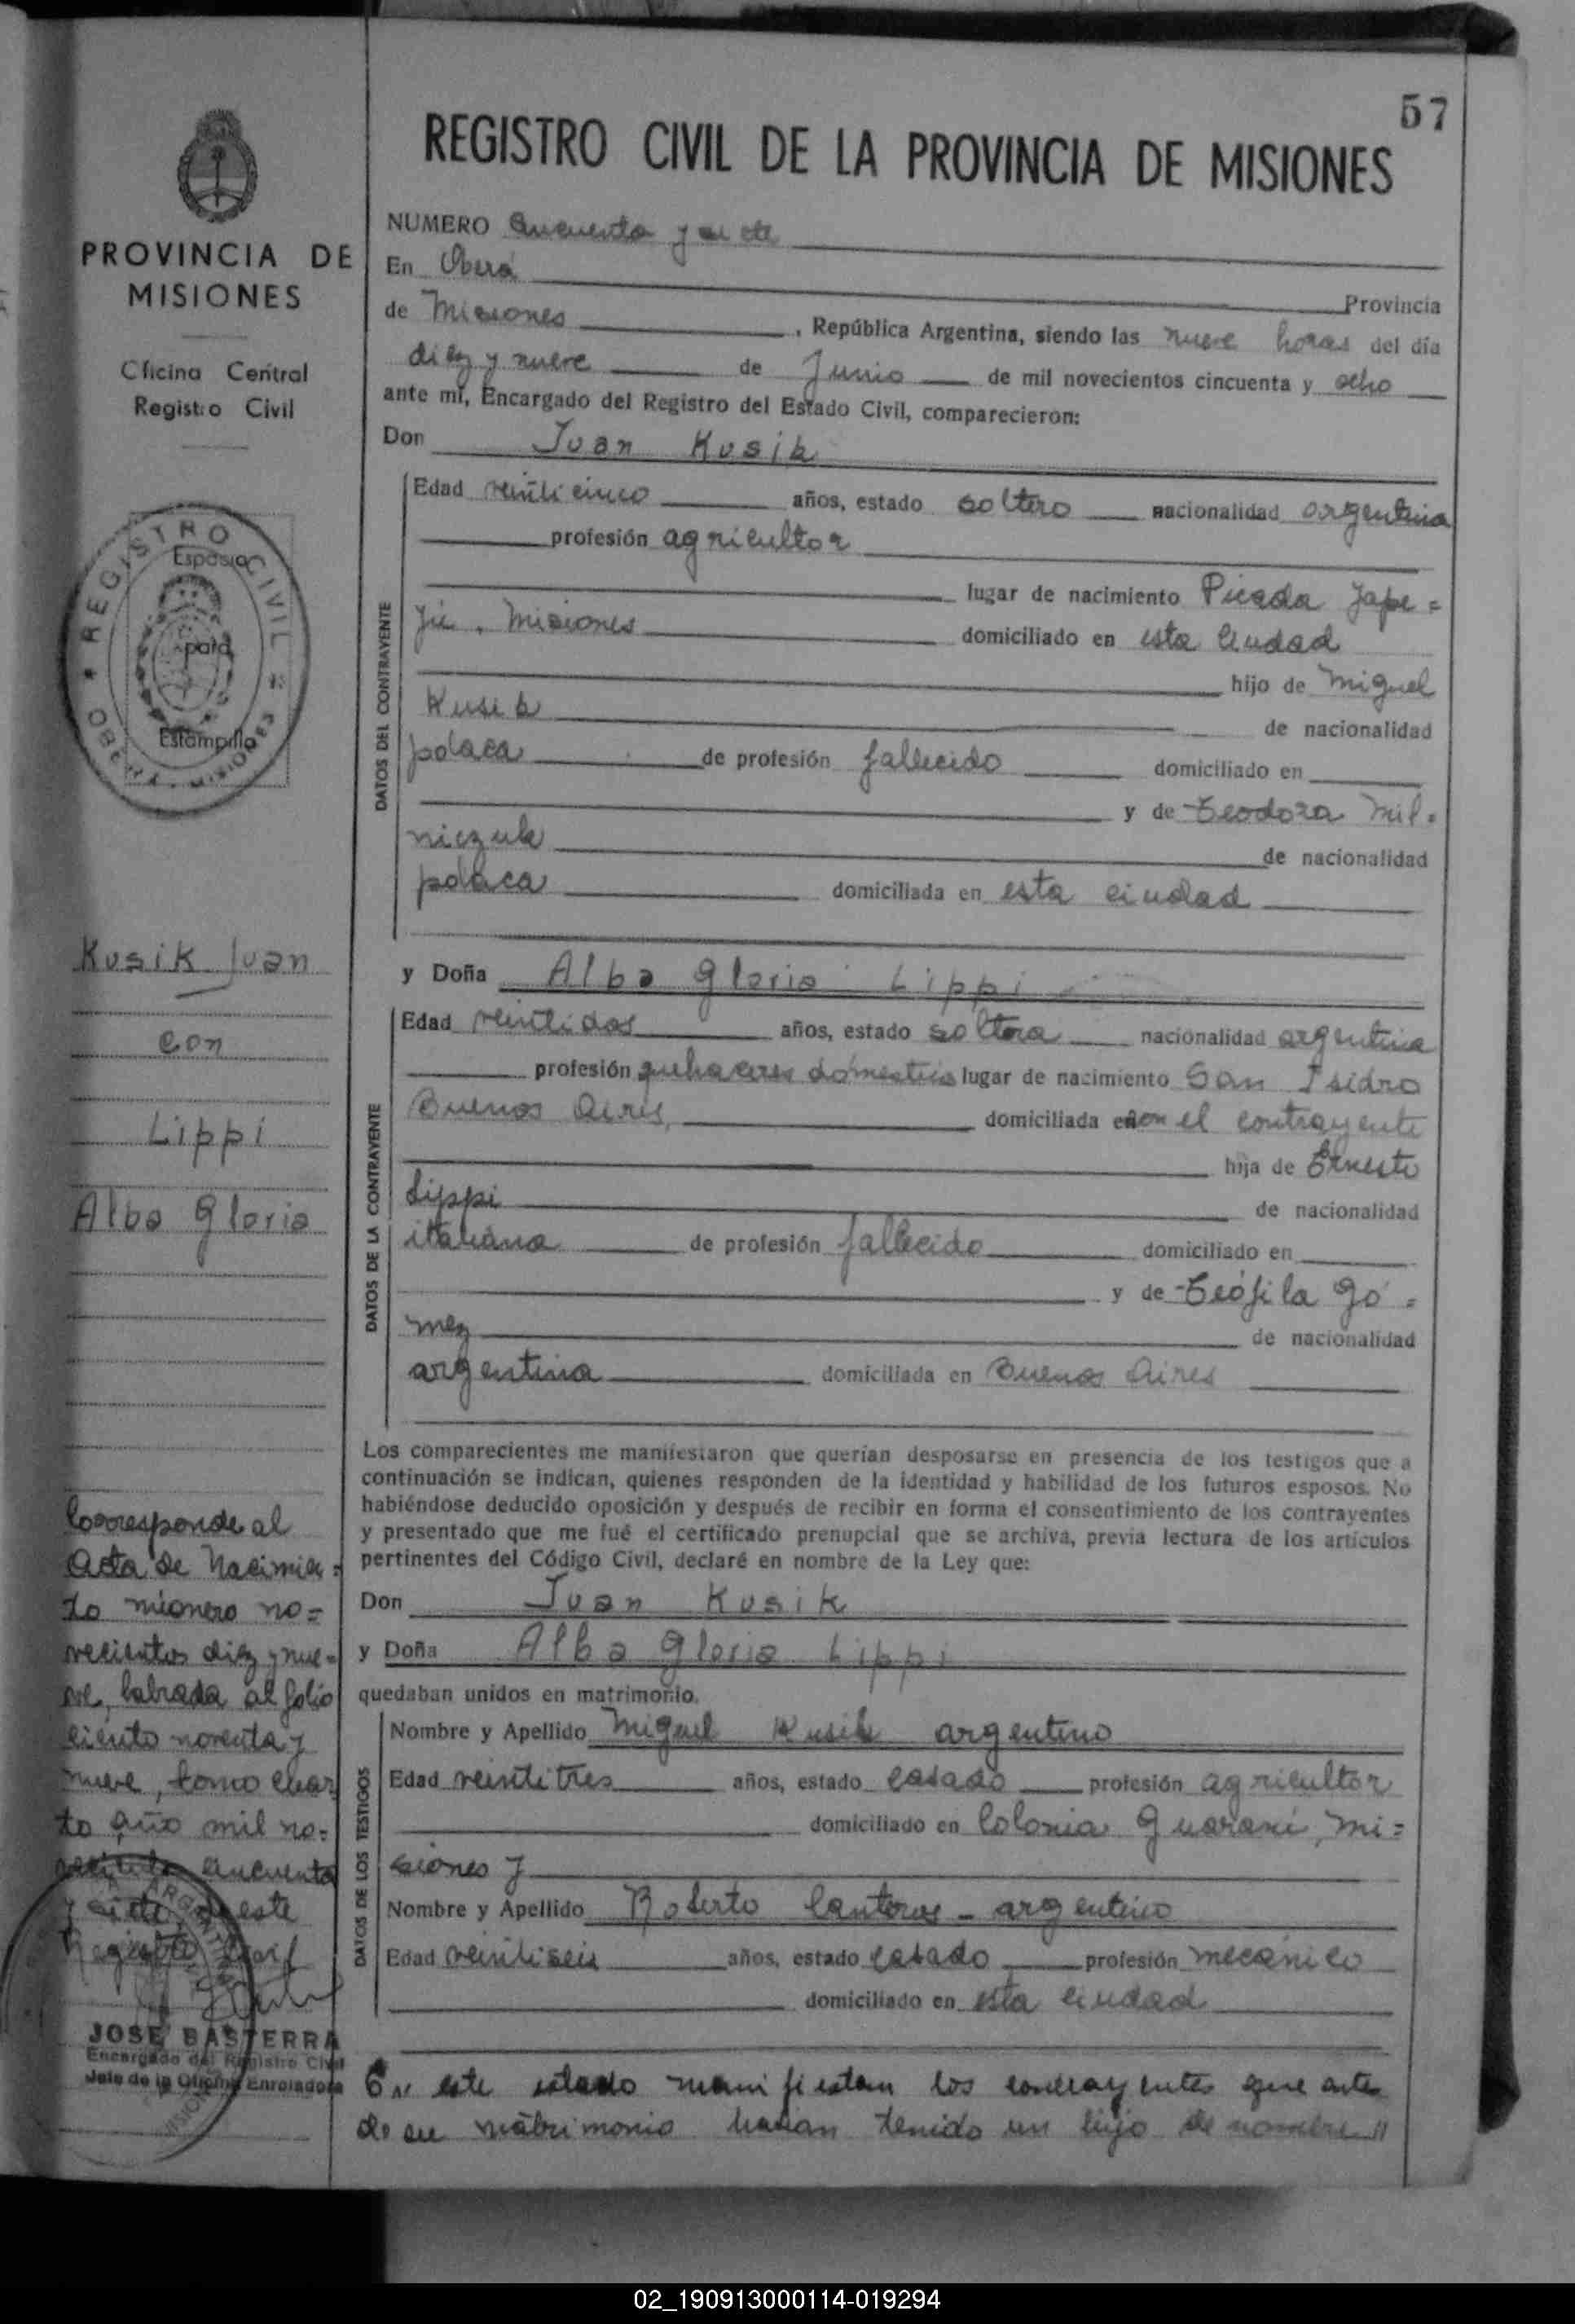 57
REGISTRO CIVIL DE LA PROVINCIA DE MISIONES
PROVINCIA DE
MISIONES
Oficina Central
Registro Civil
REGISTRO CIVIL
OBERA - MISIONES
Espacio
para
Estampilla
Kusik Juan
con
Lippi
Alba Gloria
Corresponde al
Acta de Nacimien=
to número no=
vecientos diez y nue=
ve, labrada al folio
ciento noventa y
nueve, tomo cuar
to año mil no=
vecientos cincuenta
y siete de este
Registro Civil
JOSE BASTERRA
Encargado del Registro Civil
Jefe de la Oficina Enroladora
NUMERO Cincuenta y siete
En Oberá Provincia
de Misiones, República Argentina, siendo las nueve horas del día
diez y nueve de Junio de mil novecientos cincuenta y ocho
ante mí, Encargado del Registro del Estado Civil, comparecieron:
Don Juan Kusik
DATOS DEL CONTRAYENTE
Edad veinticinco años, estado soltero nacionalidad argentina
profesión agricultor
lugar de nacimiento Picada Yape=
yú, Misiones domiciliado en esta ciudad
hijo de Miguel
Kusik de nacionalidad
polaca de profesión fallecido domiciliado en
y de Teodora Mil=
niczuk de nacionalidad
polaca domiciliada en esta ciudad
y Doña Alba Gloria Lippi
DATOS DE LA CONTRAYENTE
Edad veintidos años, estado soltera nacionalidad argentina
profesión quehaceres domésticos lugar de nacimiento San Isidro
Buenos Aires, domiciliada en con el contrayente
hija de Ernesto
Lippi de nacionalidad
italiana de profesión fallecido domiciliado en
y de Teófila Gó=
mez de nacionalidad
argentina domiciliada en Buenos Aires
Los comparecientes me manifestaron que querían desposarse en presencia de los testigos que a
continuación se indican, quienes responden de la identidad y habilidad de los futuros esposos. No
habiéndose deducido oposición y después de recibir en forma el consentimiento de los contrayentes
y presentado que me fué el certificado prenupcial que se archiva, previa lectura de los artículos
pertinentes del Código Civil, declaré en nombre de la Ley que:
Don Juan Kusik
y Doña Alba Gloria Lippi
quedaban unidos en matrimonio.
DATOS DE LOS TESTIGOS
Nombre y Apellido Miguel Kusik argentino
Edad veintitres años, estado casado profesión agricultor
domiciliado en Colonia Guaraní, Mi=
siones y
Nombre y Apellido Roberto Canteros - argentino
Edad veintiseis años, estado casado profesión mecánico
domiciliado en esta ciudad
En este estado manifiestan los contrayentes que antes
de su matrimonio habían tenido un hijo de nombre //
02_190913000114-019294